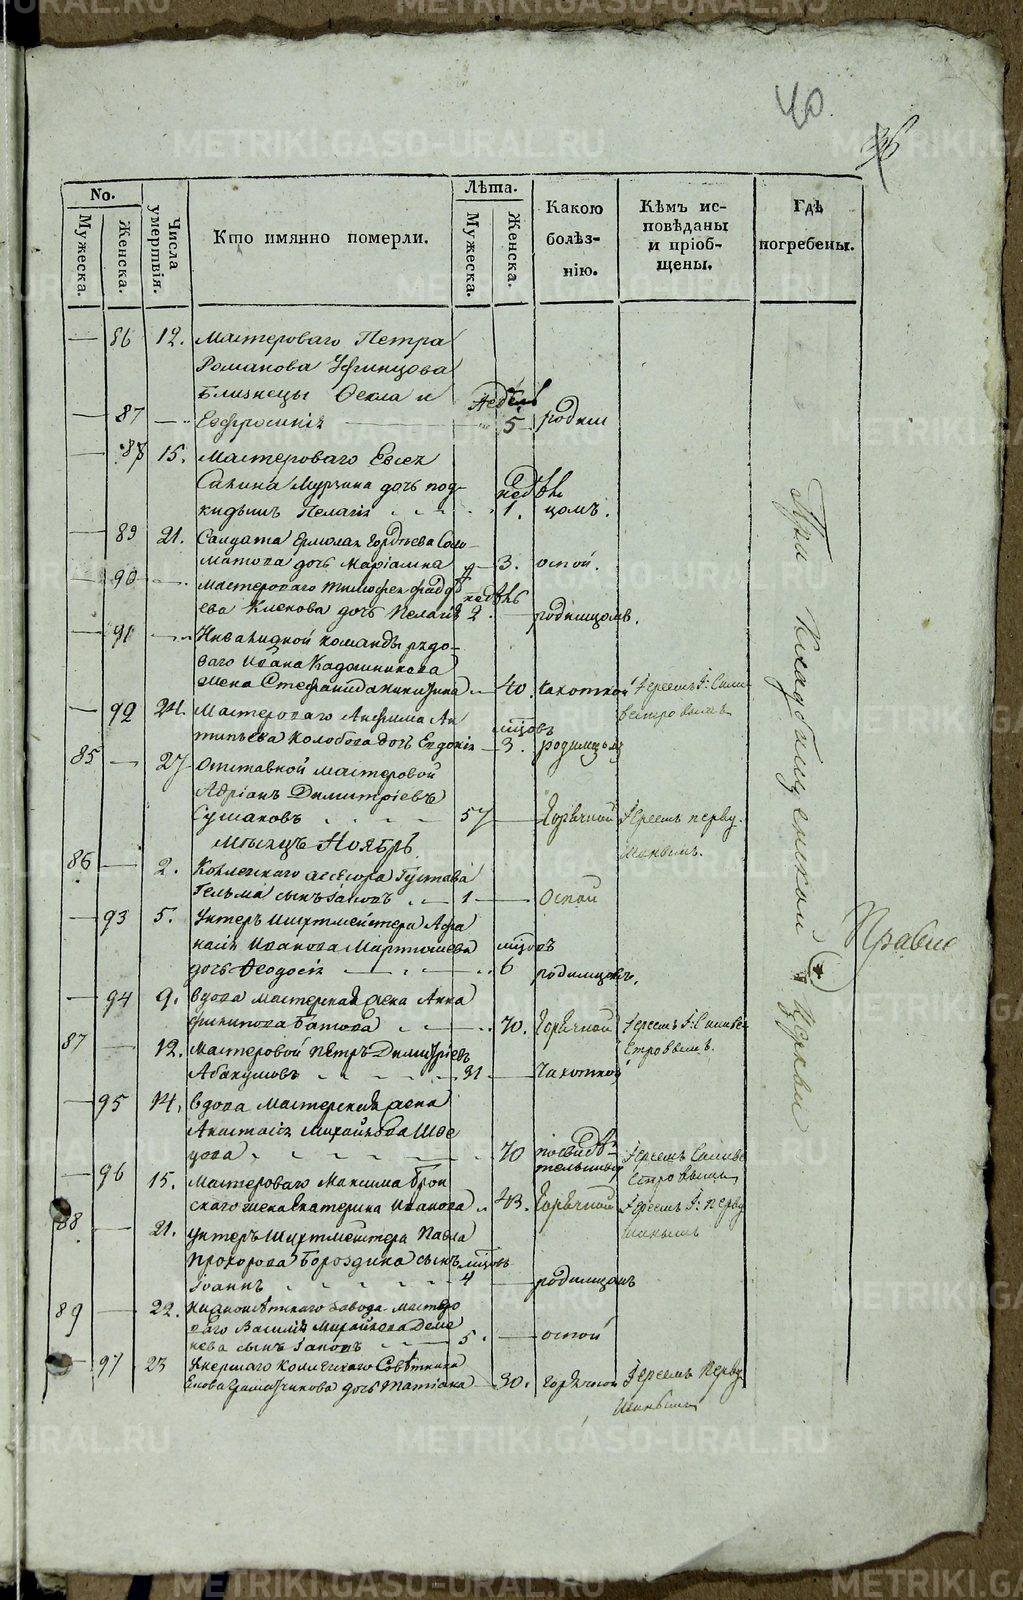 40.
36
No.
Мужеска.
Женска.
Числа умертвія.
Кто имянно померли.
Лѣта.
Мужеска.
Женска.
Какою болѣз-нію.
Кѣмъ ис-повѣданы и пріоб-щены.
Гдѣ погребены.
— 86 12. Мастероваго Петра
Романова
Близнецы Фекла и недѣль
— 87 — Евфросинія — 5 родим
— 88 15. Мастероваго Евсея
дочь под- недѣль
кидышъ Пелагія 1. цомъ.
— 89 21. Салдата Ермолая Гордѣева Соло-
матова дочь Маріамна — 3. оспой.
— 90 — Мастероваго Тимофея Фадѣ
ева Клепова дочь Пелагія недѣль 2. — родимцомъ.
— 91 — Инвалидной команды рядо-
ваго Ивана Кадошникова
жена Стефанида Никитина — 40. Чахоткой Іереемъ І: Сили
вестровымъ
— 92 24. Мастероваго Анфима Ан
типьева Колобова дочь Евдокія мцовъ — 3. родимцомъ
85 — 27 Отставной мастеровой
Адріанъ Димитріевъ
Сушаковъ 57 — Горячкой Іереемъ перву-
шинымъ.
Мѣсяцъ Ноябрь
86 — 2. Коллежскаго ассесора Густава
Гельма сынъ Іаковъ 1 — Оспой
— 93 5. Унтеръ Шихтмейстера Афа
насія Иванова Мартышева мцовъ
дочь Феодосія — 6 родимцомъ.
— 94 9. Вдова мастерская жена Анна
Филипова Батова 70. Горячкой Іереемъ І: Силиве
стровымъ.
87 — 12. Мастеровой Петръ Димитріевъ
Абакумовъ 31 — Чахоткой
— 95 14. Вдова Мастерская жена
Анастасія Михайлова Шве
цова 70 Іереемъ Силиве
стровымъ
— 96 15. Мастероваго Максима Брон
скаго жена Екатерина Иванова 43. Горячкой Іереемъ І: перву
шинымъ
88 — 21. Унтеръ Шихтмейстера Павла
Прохорова Бороздина сынъ мцовъ
Іоаннъ 4 — родимцомъ
89 — 22. завода мастеро
ваго Василія Михайлова Деме
нева сынъ Іаковъ 5. — оспой
— 97 23 Умершаго Коллежскаго Совѣтника
дочь Татіана — 30. горячкой Іереемъ Перву
шинымъ
При Кладбищенской церкви
Правис